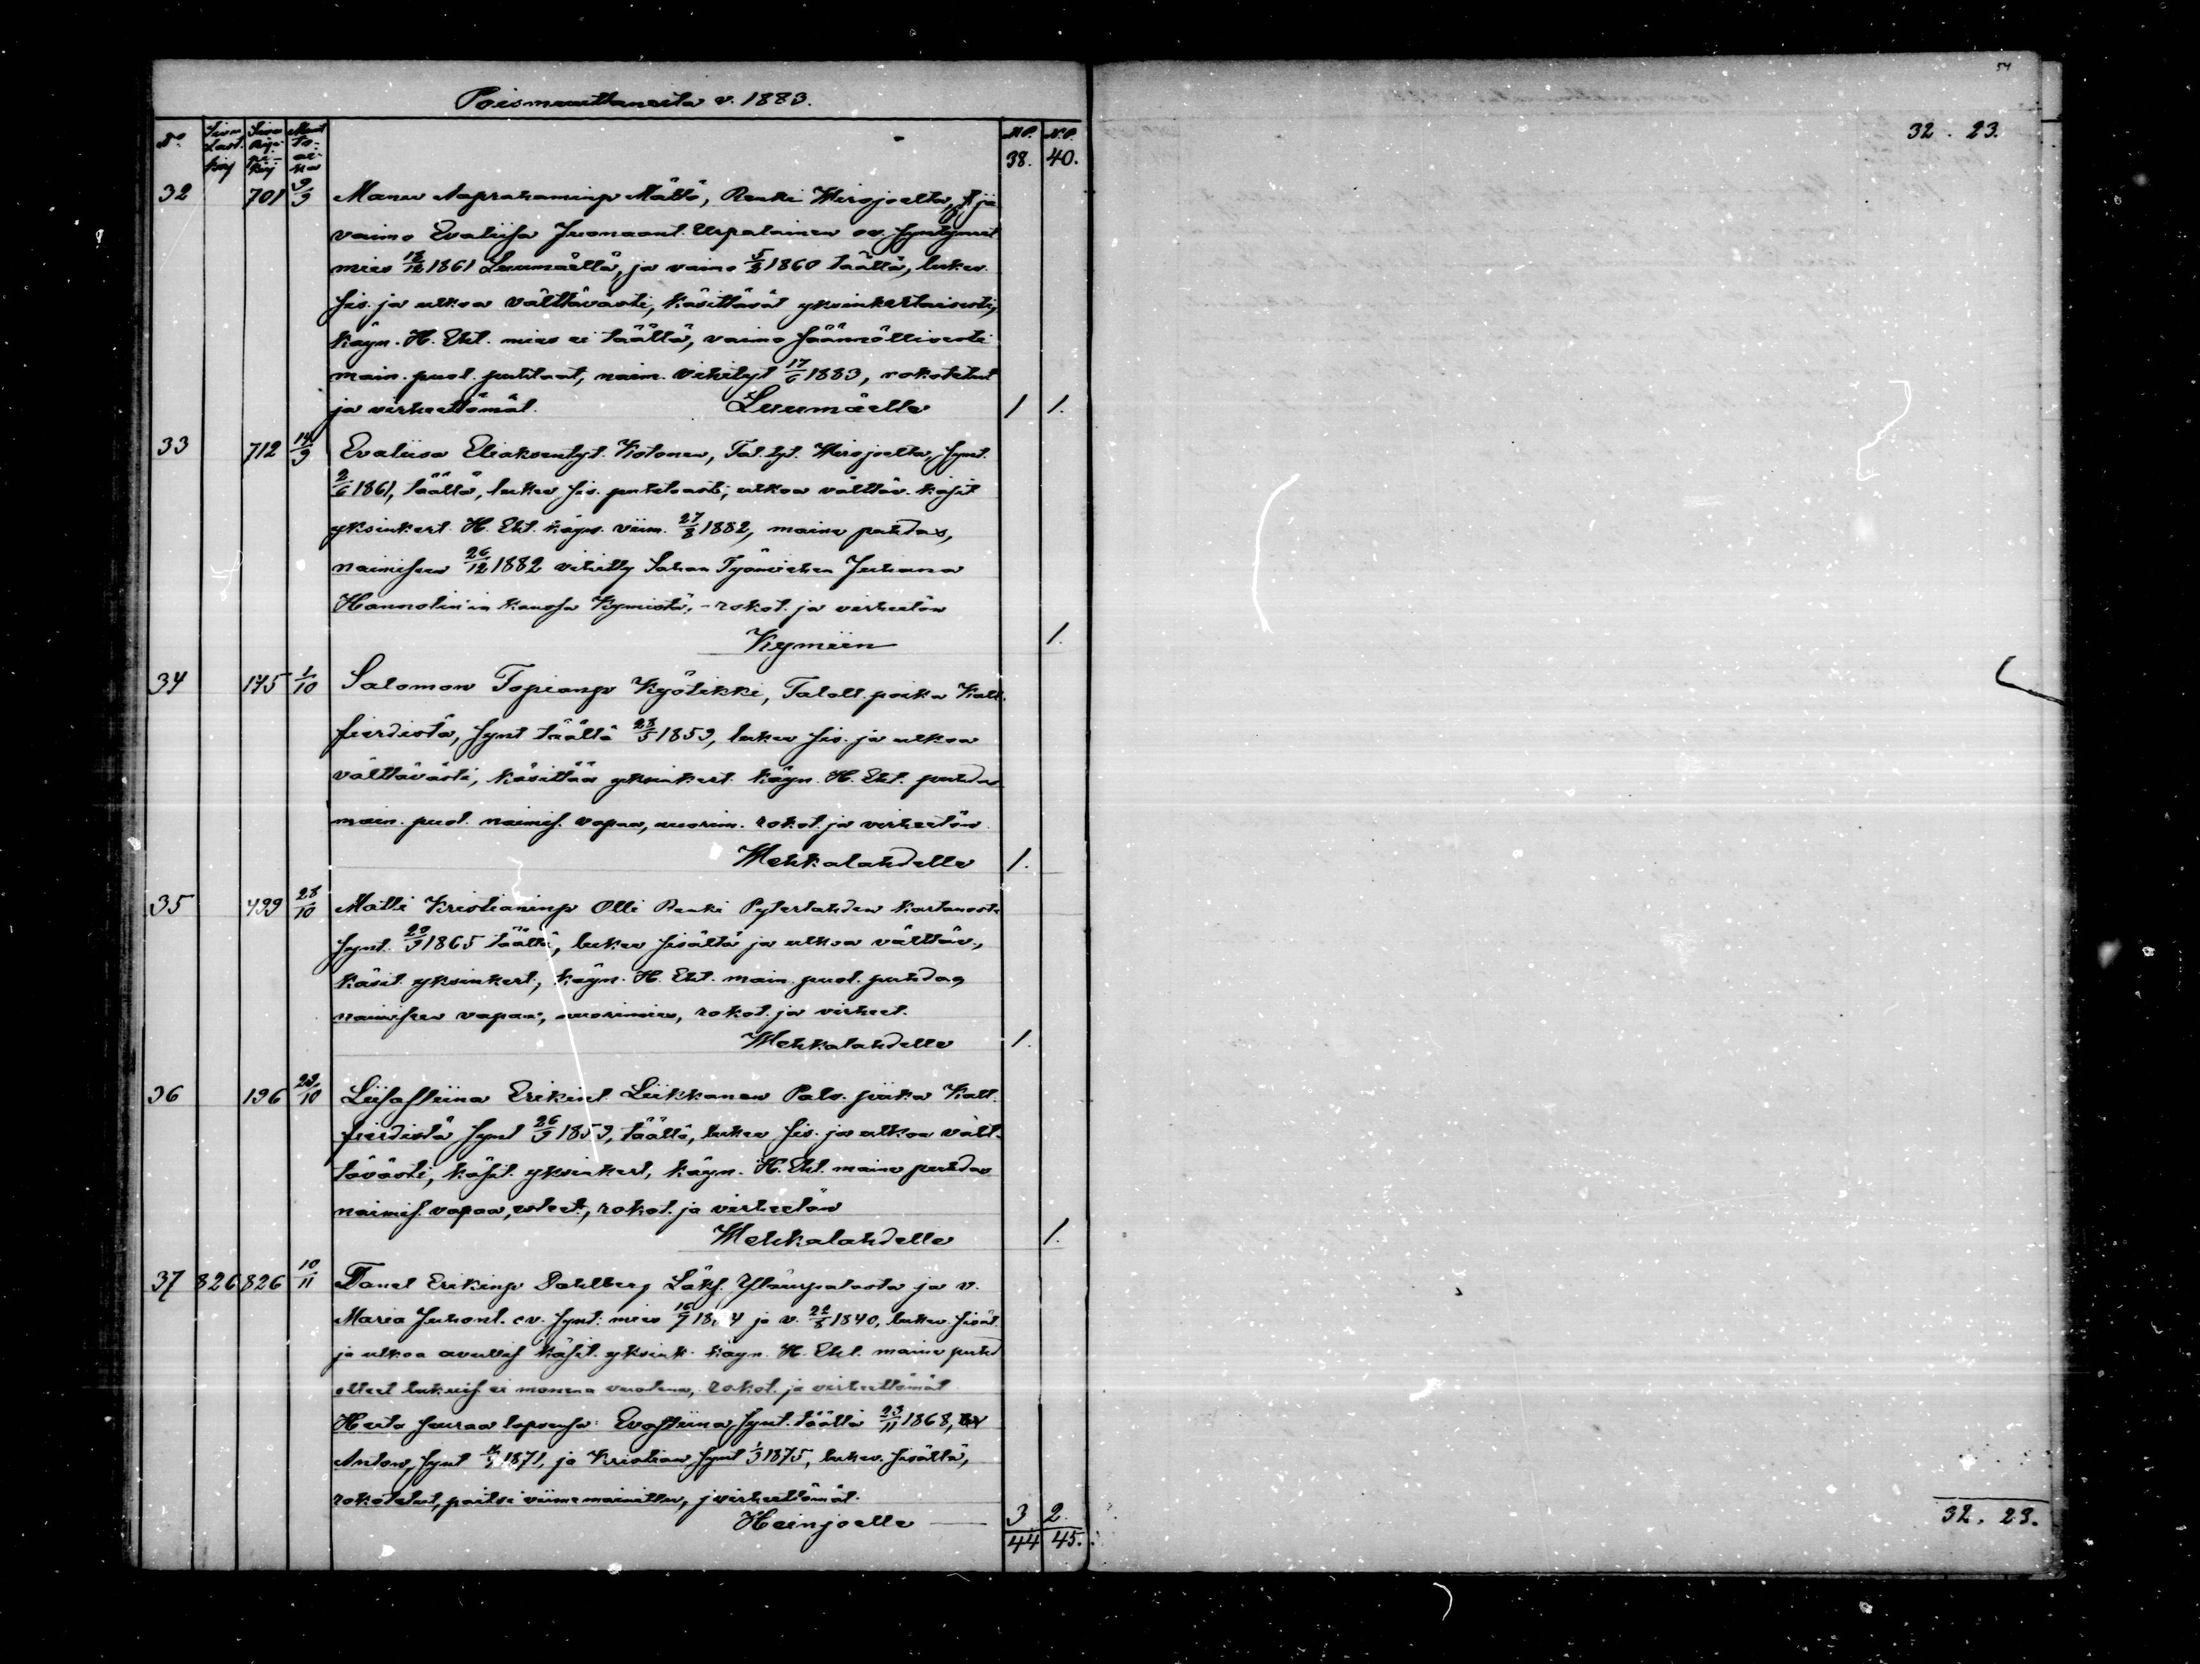 54
Poismuuttaneita v. 1883.
No. Siv. Last. kirj Sivu Rip- pi- kirj Muut to- ai- ka M.P. N.P.
38. 40.
32 701 9/9 Manu Aaprahaminp Mättö, Renki Wirojoelta, ja
vaimo Evaliisa Juonaant. Urpalainen ov. syntyneet
mies 18/12 1861 Luumäellä, ja vaimo 5/2 1860 täällä, lukev.
sis. ja ulkoa välttävästi, käsittävät yksinkertaisesti,
käyn. H. Eht. mies ei täällä, vaimo säännöllisesti
main. puol. puhtaat, naim. vihityt 17/6 1883, rokotetut
ja virheettömät. Luumäelle 1 1.
33 712 14/9 Evaliisa Eliaksentyt. Kotonen, Tal. tyt. Wirojoelta, synt.
2/6 1861, täällä, lukee sis. puhtaasti, ulkoa välttäv. käsit
yksinkert. H. Eht. käyn. viim. 27/8 1882, maine puhdas,
naimiseen 26/12 1882 vihitty Sahan Työmiehen Juhana
Hannolin'in kanssa Kymistä, - rokot. ja virheetön
Kymiin 1.
34 175 1/10 Salomon Topianp Kyötikki, Taloll. poika Kall-
fierdistä, synt täällä 28/5 1859, lukee sis. ja ulkoa
välttävästi, käsittää yksinkert. käyn. H. Eht. puhdas
main. puol. naimis. vapaa, nuorim. rokot. ja virheetön.
Wehkalahdelle 1.
35 499 28/10 Matti Kristianinp Olli Renki Pyterlahden Kartanosta
synt. 20/9 1865 täällä, lukee sisältä ja ulkoa välttäv.,
käsit. yksinkert., käyn. H. Eht. main. puol. puhdas,
naimiseen vapaa, nuorimies, rokot. ja virheet.
Wehkalahdelle 1.
36 196 29/10 Liisastiina Erikint. Liikkanen Palv. piika Kall.
fierdistä synt 26/9 1859, täällä, lukee sis. ja ulkoa vält-
tävästi, käsit. yksinkert, käyn. H. Eht. maine puhdas
naimis. vapaa, esteet., rokot. ja virheetön
Wehkalahdelle 1.
37 826 826 10/11 Tanel Erikinp Dahlberg Läks. Yläurpalasta ja v.
Maria Juhont. ov. synt: mies ja v. 22/8 1840, lukev. sisät.
ja ulkoa avullis käsit. yksink. käyn. H. Eht. maine puhd
olleet lukuis ei monena vuotena, rokot. ja virheettömät
Heitä seuraa lapsensa: Evastiina, synt. täällä 23/11 1868,
Anton, synt 1871, ja Kristian, synt 1/3 1875, lukev. sisältä,
rokotetut, paitsi viimemainittu, j virheettömät.
Heinjoelle 3 2.
44 45.
32. 23.
32. 23.